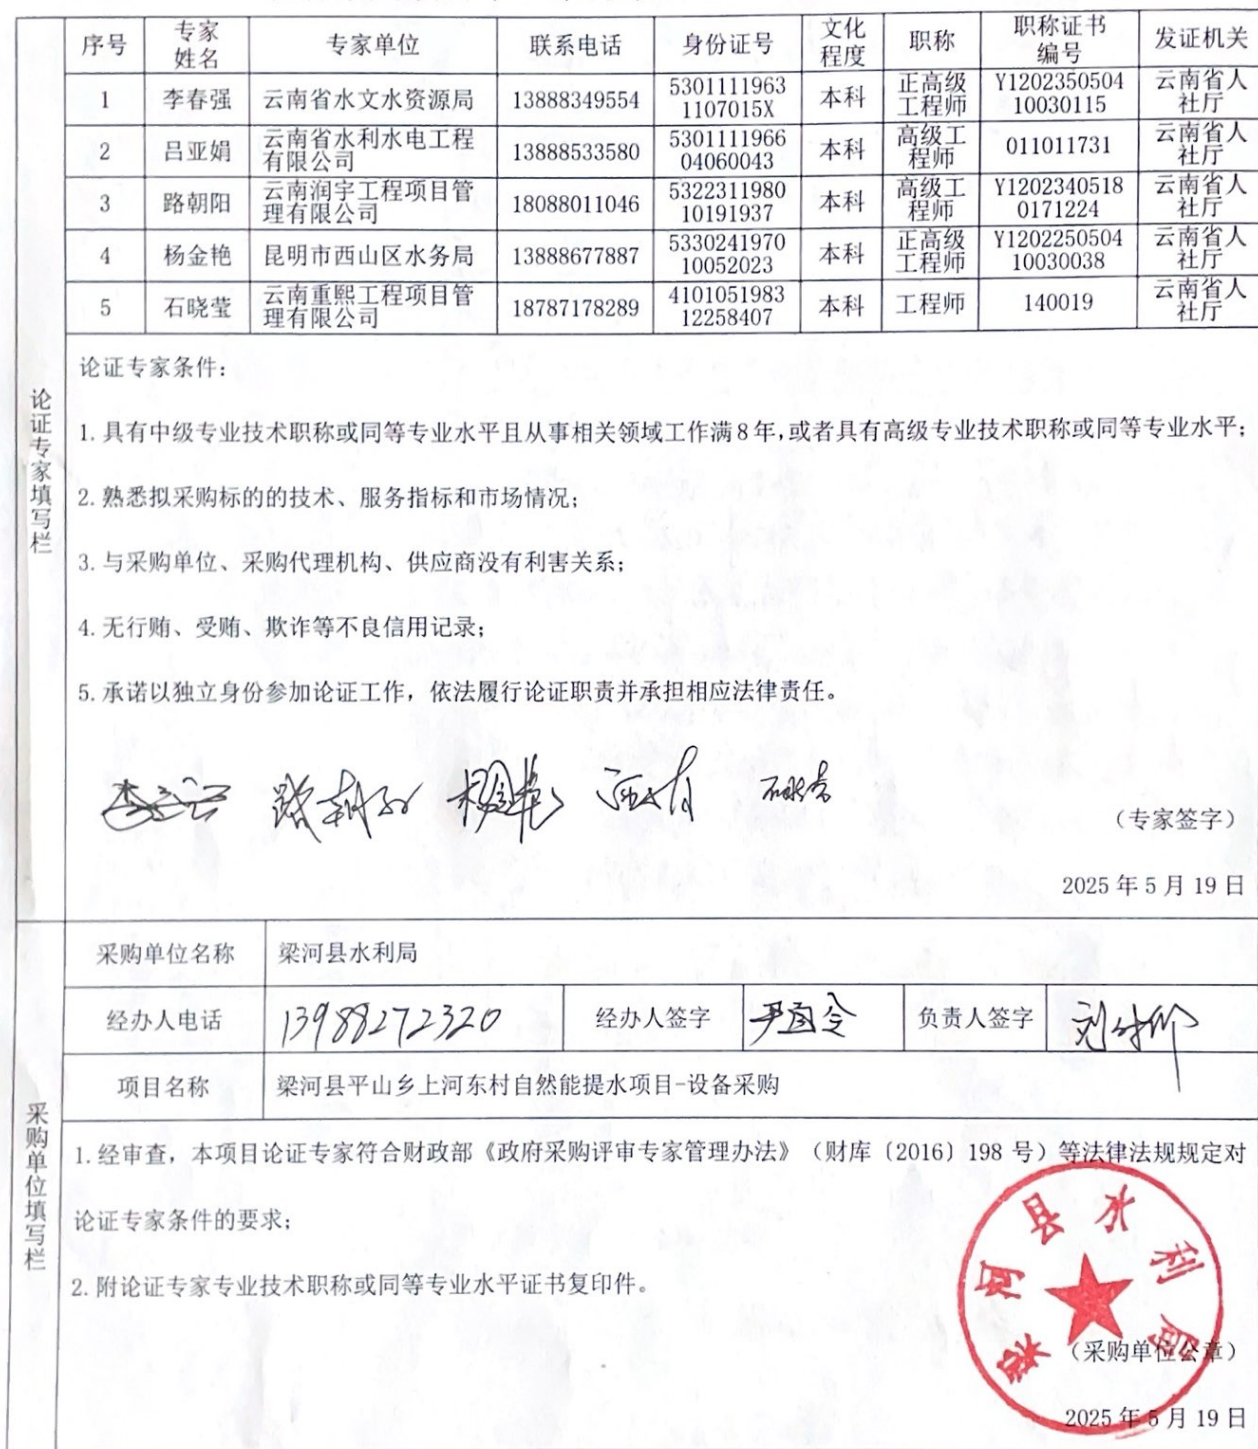 序号 专家姓名 专家单位 联系电话 身份证号 文化程度 职称 职称证书编号 发证机关
1 李春强 云南省水文水资源局 13888349554 53011119631107015X 本科 正高级工程师 Y120235050410030115 云南省人社厅
2 吕亚娟 云南省水利水电工程有限公司 13888533580 530111196604060043 本科 高级工程师 011011731 云南省人社厅
3 路朝阳 云南润宇工程项目管理有限公司 18088011046 532231198010191937 本科 高级工程师 Y12023405180171224 云南省人社厅
4 杨金艳 昆明市西山区水务局 13888677887 533024197010052023 本科 正高级工程师 Y120225050410030038 云南省人社厅
5 石晓莹 云南重熙工程项目管理有限公司 18787178289 410105198312258407 本科 工程师 140019 云南省人社厅
论证专家填写栏
论证专家条件:
1.具有中级专业技术职称或同等专业水平且从事相关领域工作满8年,或者具有高级专业技术职称或同等专业水平;
2.熟悉拟采购标的的技术、服务指标和市场情况;
3.与采购单位、采购代理机构、供应商没有利害关系;
4.无行贿、受贿、欺诈等不良信用记录;
5.承诺以独立身份参加论证工作，依法履行论证职责并承担相应法律责任。
（专家签字）
2025年5月19日
采购单位填写栏
采购单位名称 梁河县水利局
经办人电话 13988272320 经办人签字 负责人签字
项目名称 梁河县平山乡上河东村自然能提水项目-设备采购
1.经审查，本项目论证专家符合财政部《政府采购评审专家管理办法》（财库〔2016〕198号）等法律法规规定对
论证专家条件的要求;
2.附论证专家专业技术职称或同等专业水平证书复印件。
梁河县水利局
（采购单位公章）
2025年5月19日